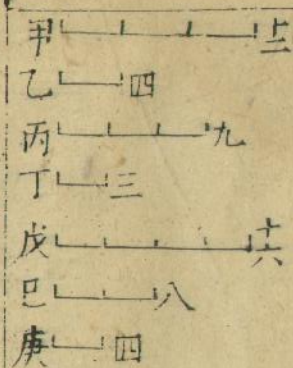 甲 十二
乙 四
丙 九
丁 三
戊 十六
巳 八
庚 四